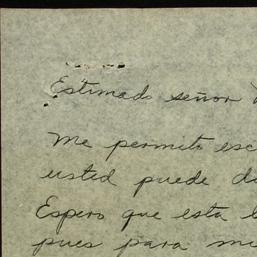 Estimado señor
Me permito esc
usted puede di
Espero que esta l
pues para mi